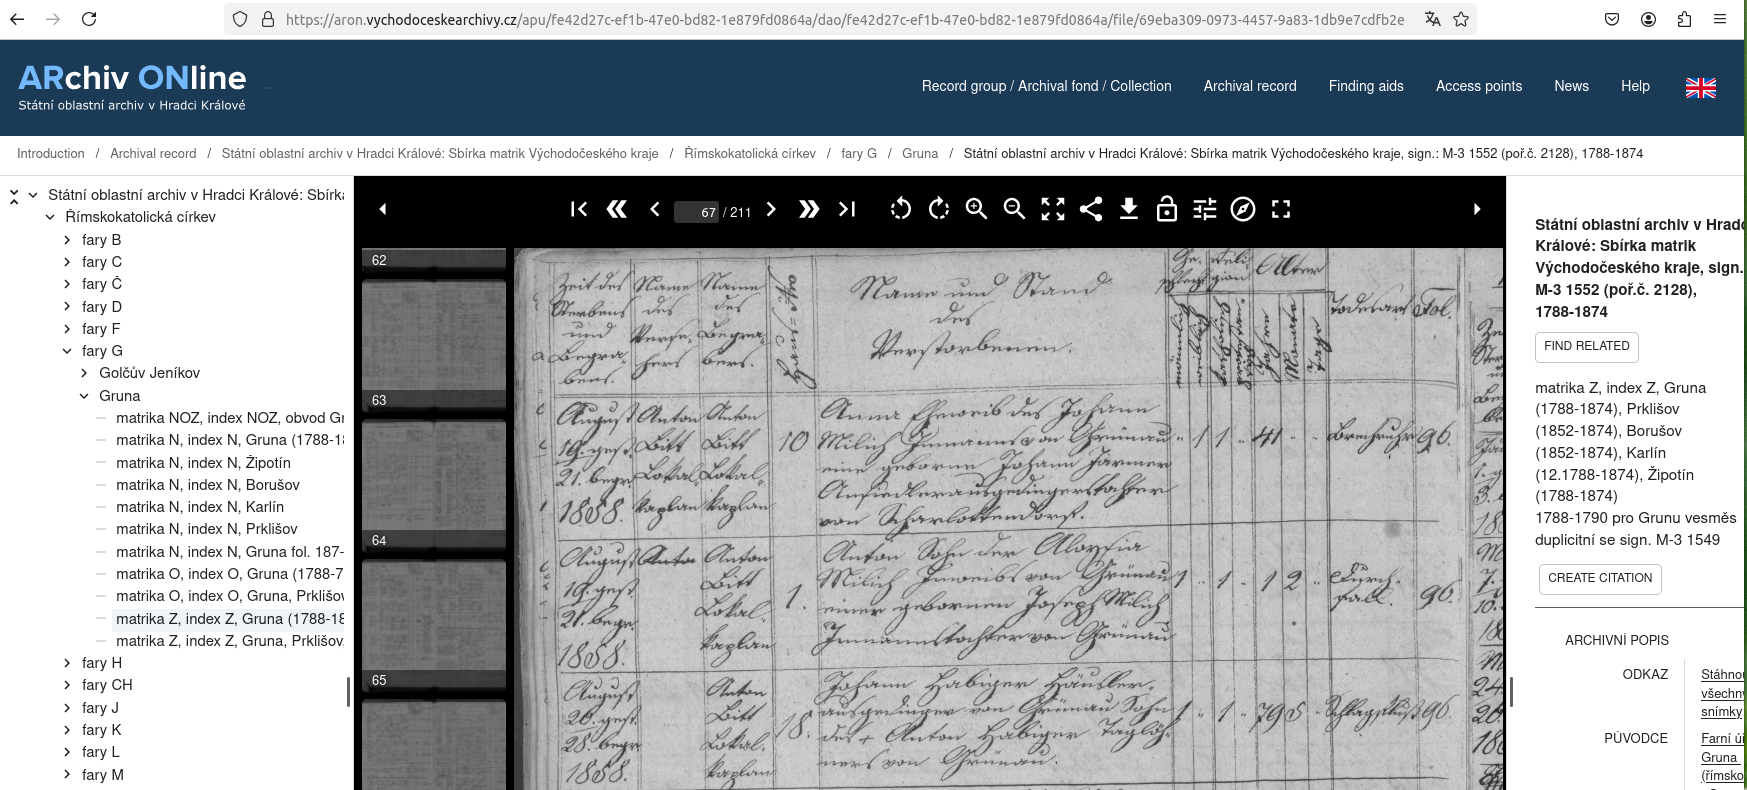 https://aron.vychodoceskearchivy.cz/apu/fe42d27c-ef1b-47e0-bd82-1e879fd0864a/dao/fe42d27c-ef1b-47e0-bd82-1e879fd0864a/file/69eba309-0973-4457-9a83-1db9e7cdfb2e
ARchiv ONline
Státní oblastní archiv v Hradci Králové
Record group / Archival fond / Collection
Archival record
Finding aids
Access points
News
Help
Introduction / Archival record / Státní oblastní archiv v Hradci Králové: Sbírka matrik Východočeského kraje / Římskokatolická církev / fary G / Gruna / Státní oblastní archiv v Hradci Králové: Sbírka matrik Východočeského kraje, sign.: M-3 1552 (poř.č. 2128), 1788-1874
Státní oblastní archiv v Hradci Králové: Sbírka
Římskokatolická církev
fary B
fary C
fary Č
fary D
fary F
fary G
Golčův Jeníkov
Gruna
matrika NOZ, index NOZ, obvod Gr
matrika N, index N, Gruna (1788-18
matrika N, index N, Žipotín
matrika N, index N, Borušov
matrika N, index N, Karlín
matrika N, index N, Prklišov
matrika N, index N, Gruna fol. 187-
matrika O, index O, Gruna (1788-7
matrika O, index O, Gruna, Prklišov
matrika Z, index Z, Gruna (1788-18
matrika Z, index Z, Gruna, Prklišov,
fary H
fary CH
fary J
fary K
fary L
fary M
67 / 211
62
63
64
65
Zeit des
Sterbens
und
Begra-
bens.
Name
des
Verse-
hers
Name
des
Begra-
bers.
Name und Stand
des
Verstorbenen.
Alter
Jahre
Monate
Tage
Todesart
Fol.
August
19. gest
21. begr
1858.
Anton
Bitt
Lokal-
kaplan
Anton
Bitt
Lokal-
kaplan
10
Anna Eheweib des Johann
Milich Inmanns von Grünau
eine geborne Johann
Ansiedlerausgedingerstochter
von Scharlottendorf.
1 1 41
Brechruhr
96.
August
19. gest
21. begr.
1858.
Anton
Anton
Bitt
Lokal-
kaplan
1.
Anton Sohn der Aloysia
Milich Inweibs von Grünau
einer gebornen Joseph Milich
Inmannstochter von Grünau
1 1 1 2
Durch-
fall.
96.
August
20. gest.
1858.
Anton
Bitt
Lokal-
kaplan
18.
Johann Habiger Häusler-
ausgedinger von Grünau Sohn
des + Anton Habiger Taglöh-
ners von Grünau.
1 1 79
Schlagfluß
96.
Státní oblastní archiv v Hradc
Králové: Sbírka matrik
Východočeského kraje, sign.
M-3 1552 (poř.č. 2128),
1788-1874
FIND RELATED
matrika Z, index Z, Gruna
(1788-1874), Prklišov
(1852-1874), Borušov
(1852-1874), Karlín
(12.1788-1874), Žipotín
(1788-1874)
1788-1790 pro Grunu vesměs
duplicitní se sign. M-3 1549
CREATE CITATION
ARCHIVNÍ POPIS
ODKAZ
Stáhnou
všechny
snímky
PŮVODCE
Farní úř
Gruna
(římsko